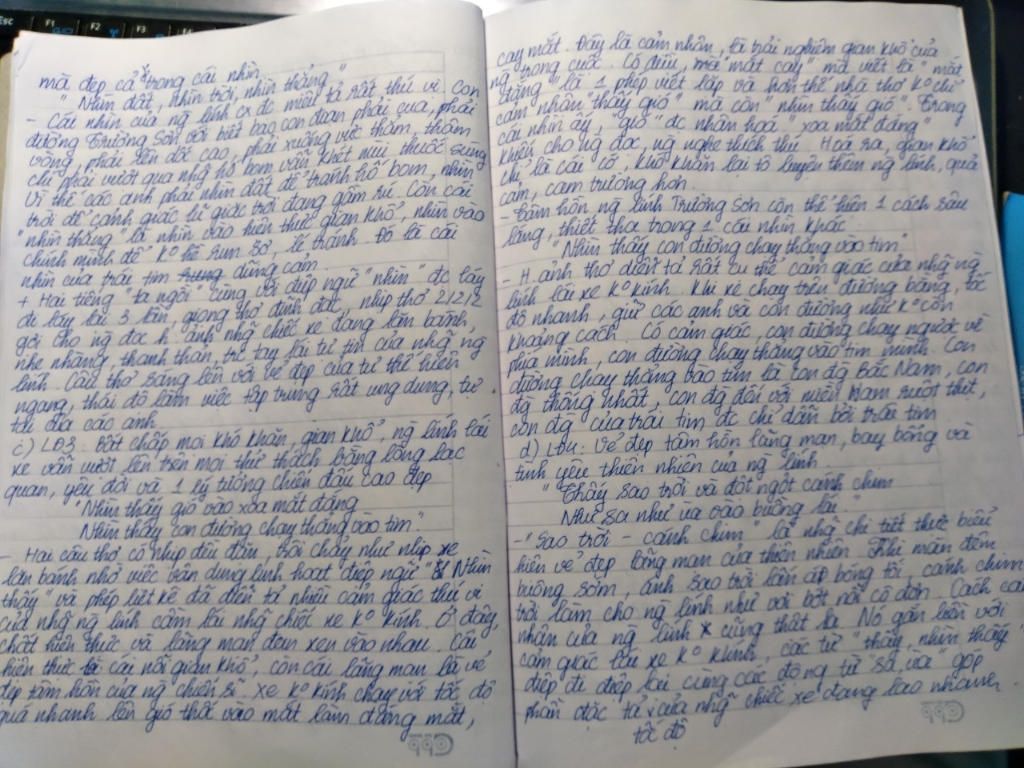 Esc F1 F2 F3
mà đẹp cả trong cái nhìn
" Nhìn đất, nhìn trời, nhìn thẳng "
- Cái nhìn của ng lính cx đc miêu tả rất thú vị. Con
đường Trường Sơn với biết bao con đoạn phải qua, phải
vòng, phải lên dốc cao, phải xuống vực thẳm, thậm
chí phải vượt qua nhg hố bom vẫn khét mùi thuốc súng
Vì thế các anh phải nhìn đất để tránh hố bom, nhìn
trời để cảnh giác từ giặc trời đang gầm rú. Còn cái
"nhìn thẳng" là nhìn vào hiện thực gian khổ, nhìn vào
chính mình để kº hề run sợ, lé tránh. Đó là cái
nhìn của trái tim dũng cảm.
+ Hai tiếng "ta ngồi" cùng với điệp ngữ "nhìn" đc láy
đi láy lại 3 lần, giọng thơ đĩnh đạc, nhịp thơ 2/2/2
gợi cho ng đọc h. ảnh nhg chiếc xe đang lăn bánh,
nhẹ nhàng, thanh thản, trc tay lái tự tin của nhg ng
lính. Câu thơ sáng lên với vẻ đẹp của tư thế hiên
ngang, thái độ làm việc tập trung rất ung dung, tự
tại của các anh
c) LĐ3: Bất chấp mọi khó khăn, gian khổ, ng lính lái
xe vẫn vượt lên trên mọi thử thách bằng lòng lạc
quan, yêu đời và 1 lý tưởng chiến đấu cao đẹp
"Nhìn thấy gió vào xoa mắt đắng
Nhìn thấy con đường chạy thẳng vào tim"
- Hai câu thơ có nhịp đều đều, trôi chảy như nhịp xe
lăn bánh nhờ việc vận dụng linh hoạt điệp ngữ "Nhìn
thấy" và phép liệt kê đã diễn tả nhiều cảm giác thú vị
của nhg ng lính cầm lái nhg chiếc xe kº kính. Ở đây,
chất hiện thực và lãng mạn đan xen vào nhau. Cái
hiện thực là cái nỗi gian khổ, còn cái lãng mạn là vẻ
đẹp tâm hồn của ng chiến sĩ. Xe kº kính chạy với tốc độ
quá nhanh lên gió thổi vào mắt làm đắng mắt,
cay mắt. Đây là cảm nhận, là trải nghiệm gian khổ của
ng trong cuộc. Có điều, mà "mắt cay" mà viết là "mắt
đắng" là 1 phép viết lấp và hơn thế nhà thơ kº chỉ
cảm "nhận thấy gió" mà còn "nhìn thấy gió". Trong
cái nhìn ấy, "gió" đc nhân hoá "xoa mắt đắng"
khiến cho ng đọc, ng nghe thích thú. Hoá ra, gian khổ
chỉ là cái cớ, khó khăn lại tô luyện thêm ng lính, quả
cảm, can trường hơn.
- Tâm hồn ng lính Trường Sơn còn thể hiện 1 cách sâu
lắng, thiết tha trong 1 cái nhìn khác
"Nhìn thấy con đường chạy thẳng vào tim"
- H.ảnh thơ diễn tả rất cụ thể cảm giác của nhg ng
lính lái xe kº kính. Khi xe chạy trên đường bằng, tốc
độ nhanh, giữ các anh và con đường như kº còn
khoảng cách. Có cảm giác, con đường chạy ngược về
phía mình, con đường chạy thẳng vào tim mình. Con
đường chạy thẳng vào tim là con đg Bắc Nam, con
đg thống nhất, con đg đến với miền Nam ruột thịt,
con đg của trái tim đc chỉ dẫn bởi trái tim
d) LĐ4: Vẻ đẹp tâm hồn lãng mạn, bay bổng và
tình yêu thiên nhiên của ng lính.
" Thấy sao trời và đột ngột cánh chim
Như sa như ùa vào buồng lái "
- "Sao trời - cánh chim" là nhg chi tiết thực biểu
hiện vẻ đẹp lãng mạn của thiên nhiên. Khi màn đêm
buông sớm, ánh sao trời lấn áp bóng tối, cánh chim
trời làm cho ng lính như vơi bớt nỗi cô đơn. Cách cảm
nhận của ng lính cũng thật lạ. Nó gắn liền với
cảm giác lái xe kº kính. Các từ "thấy, nhìn thấy"
điệp đi điệp lại cùng các động từ "sa, ùa" góp
phần đặc tả của nhg chiếc xe đang lao nhanh.
tốc độ